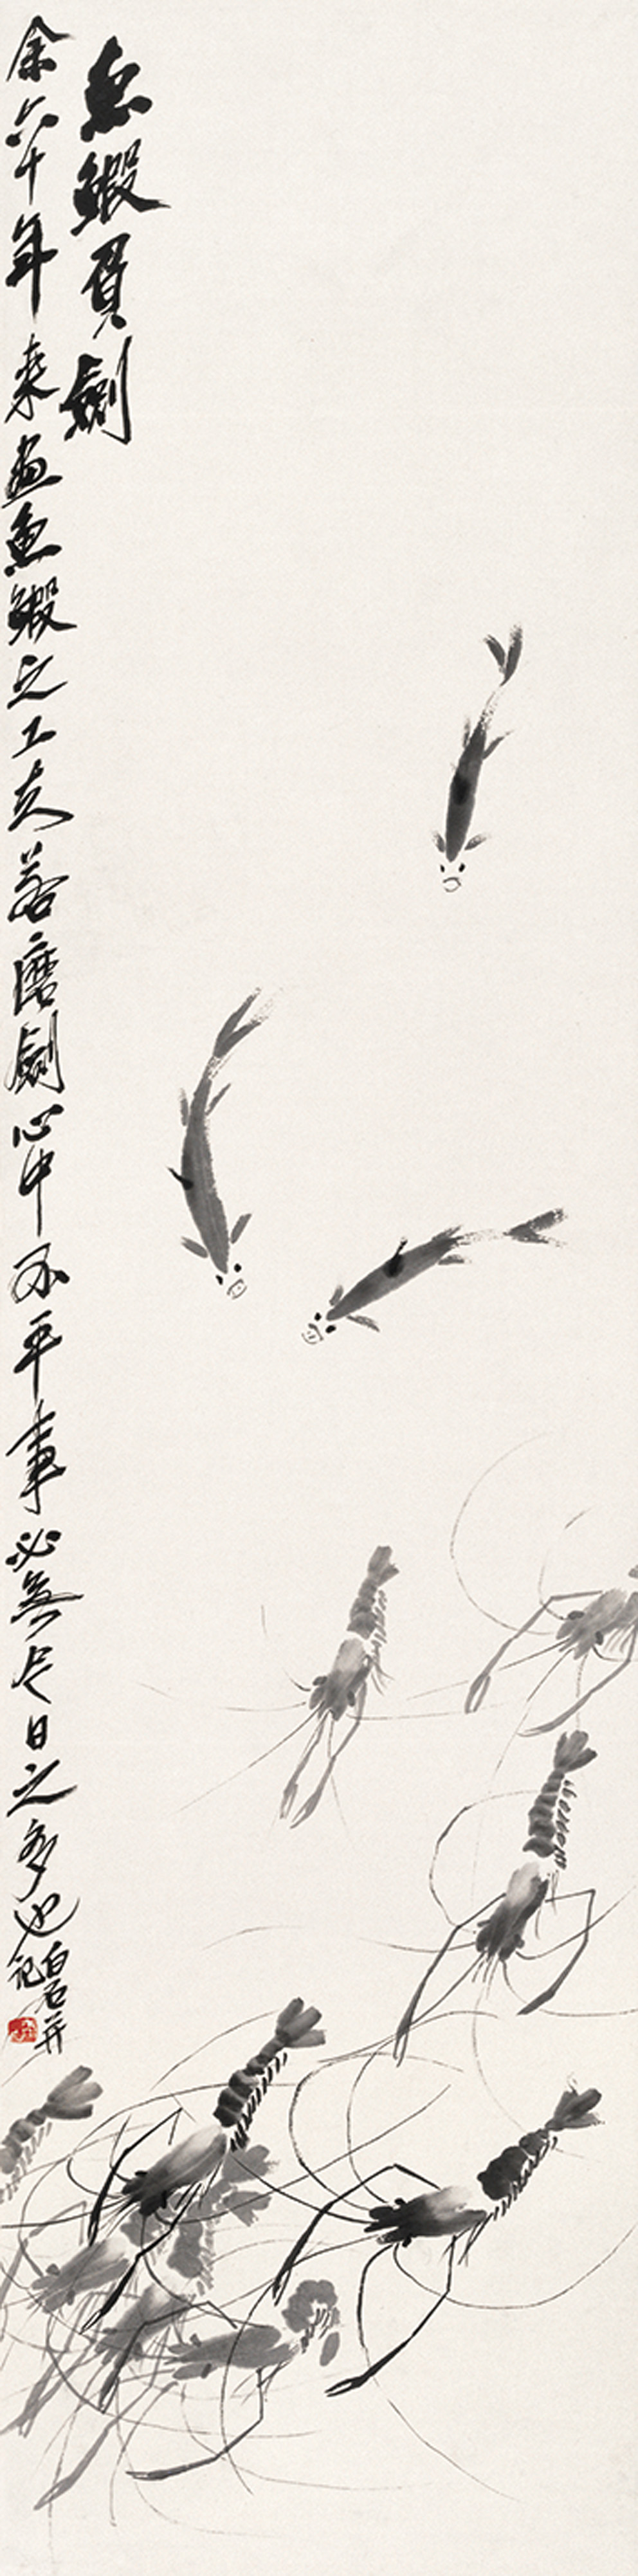 魚鰕劍
余六十年来畫魚鰕之工夫若磨劍心中不平事必無今日之多也
白石并記